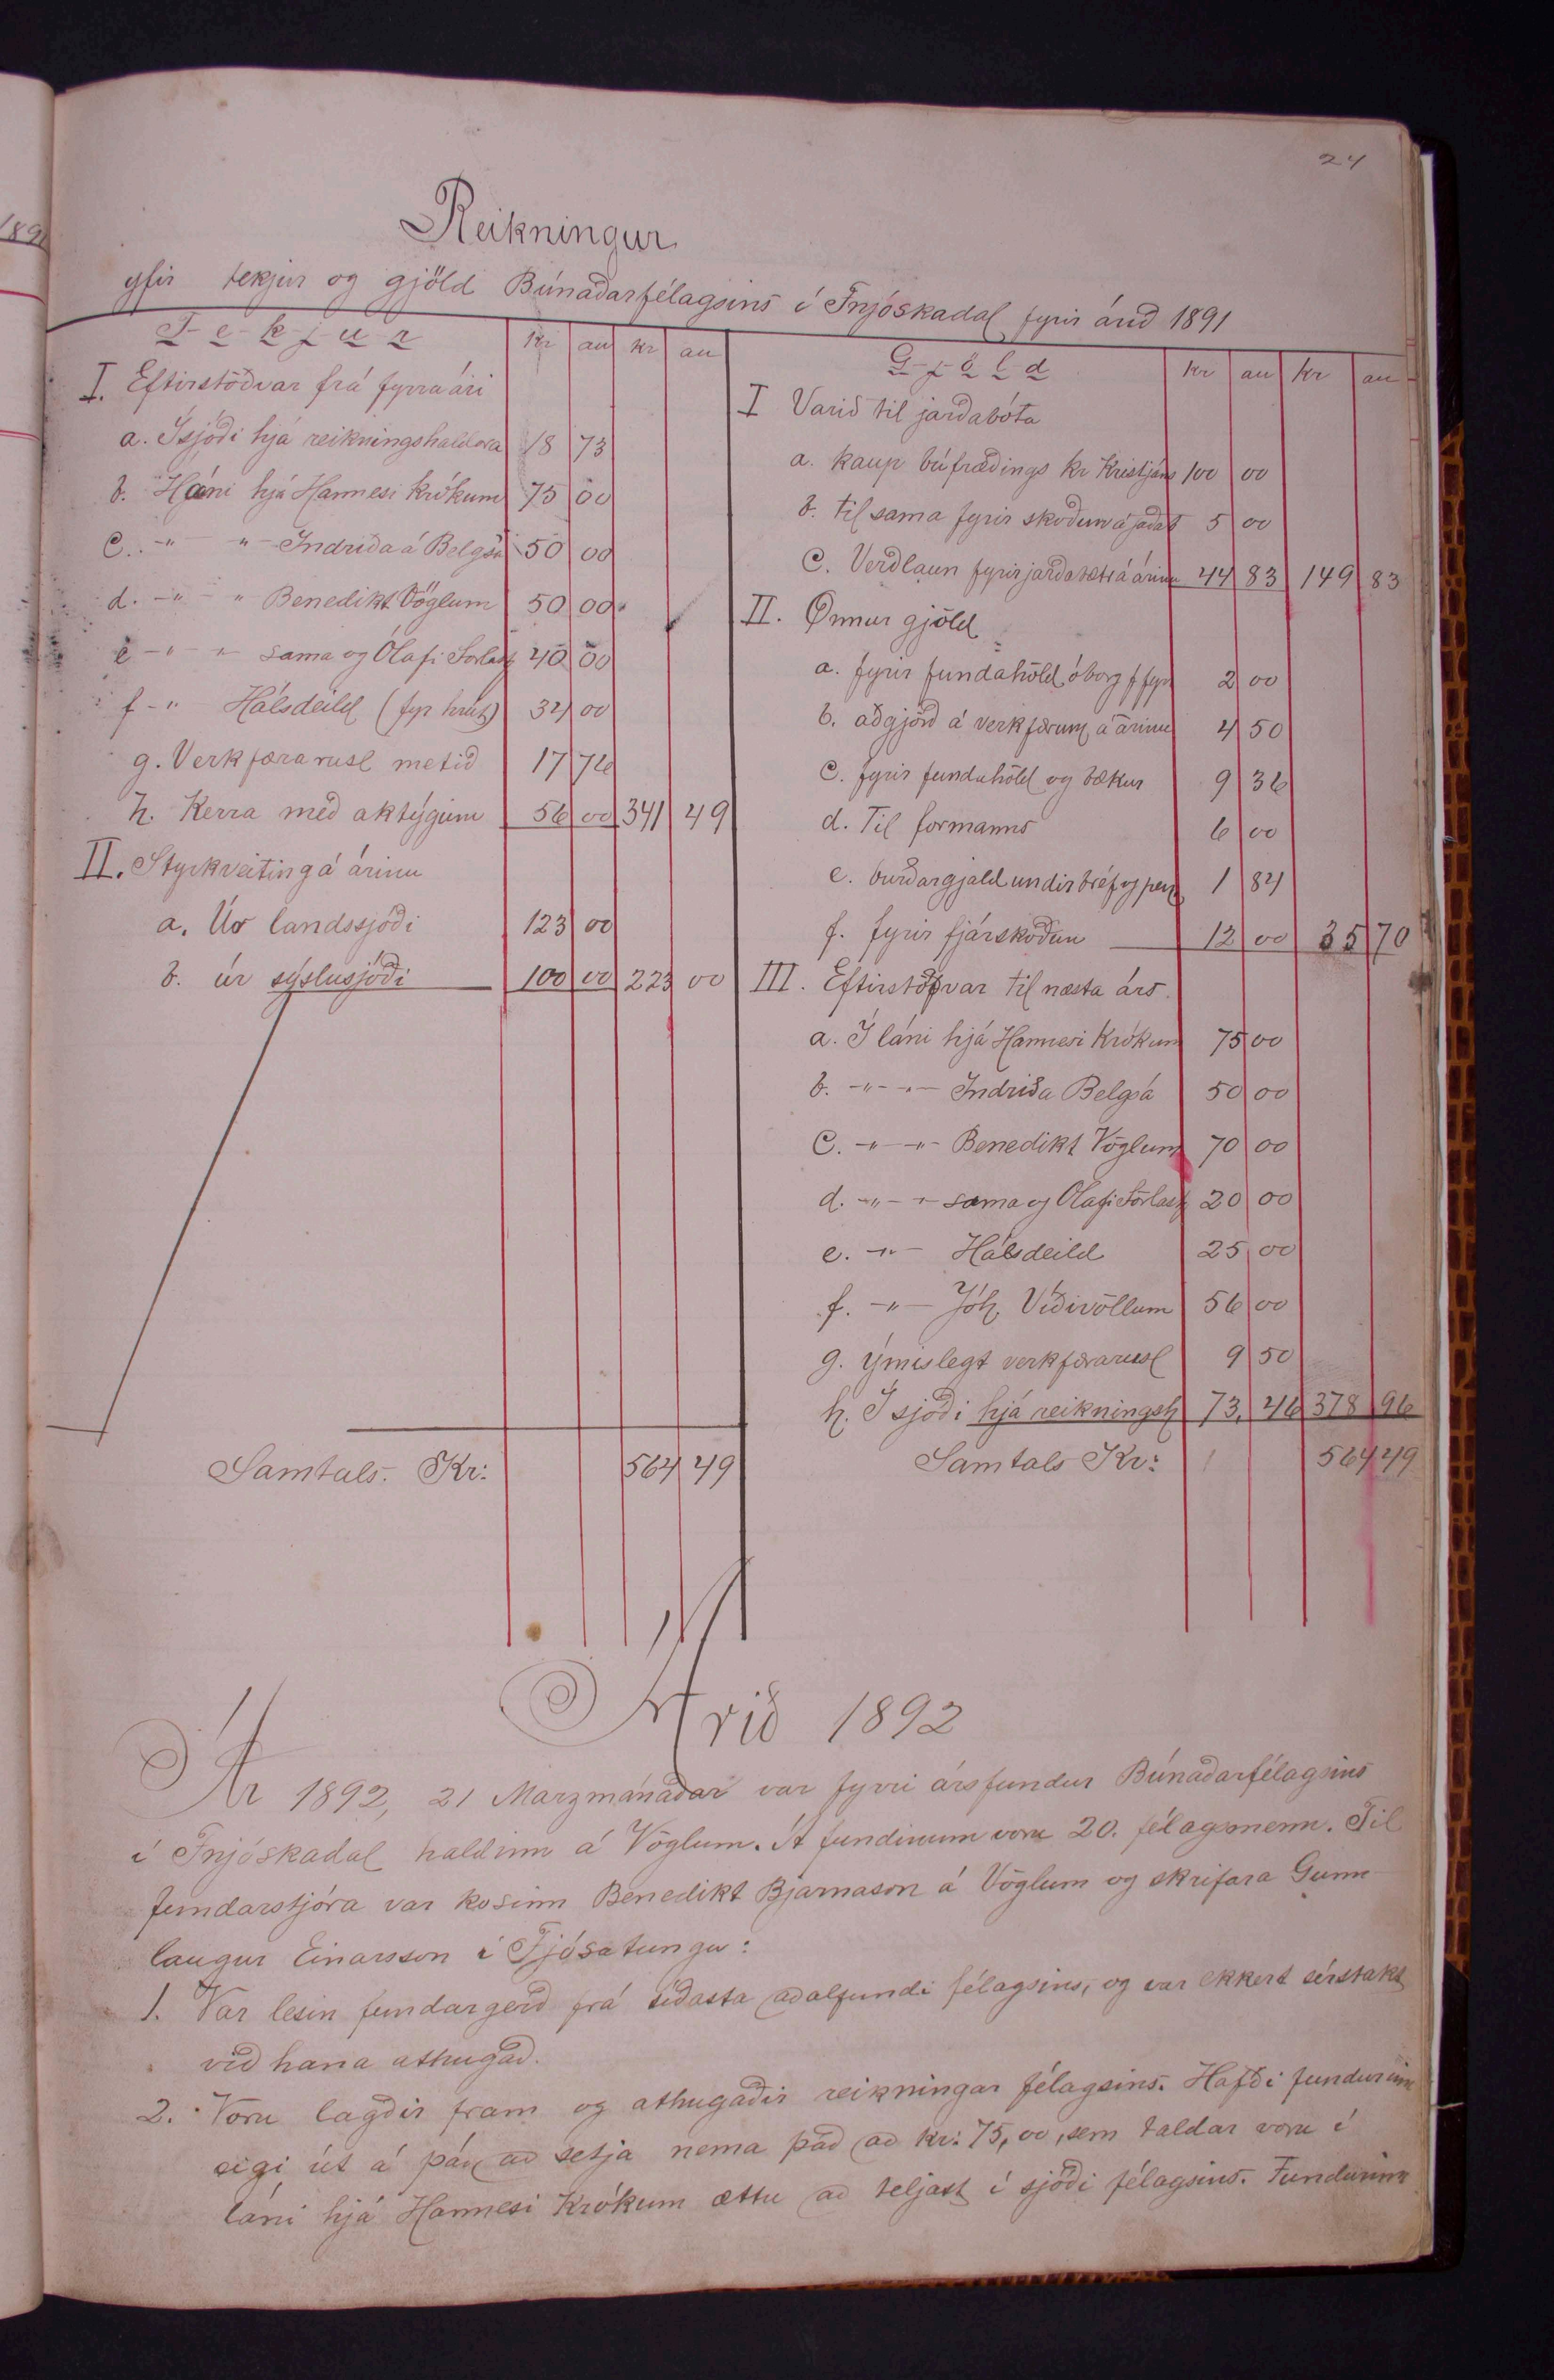 24
1891
Reikningur
yfir tekjur og gjöld Búnaðarfélagsins í Fnjóskadal fyrir árið 1891
Tekjur kr au kr au
I. Eftirstöðvar frá fyrra ári
a. Í sjóði hjá reikningshaldara 18 73
b. Í láni hjá Hannesi Krókum 75 00
c. -"- "- Indriða á Belgsá 50 00
d. -"- " Benedikt Vöglum 50 00
e -"- "- sama og Ólafi Sörlast 40 00
f -" Hálsdeild (fyr hrút) 34 00
g. Verkfærarusl metið 17 76
h. Kerra með aktýgum 56 00 341 49
II. Styrkveiting á árinu
a. Úr landssjóði 123 00
b. úr sýslusjóði 100 00 223 00
Samtals. Kr: 564 49
Gjöld kr au kr au
I Varið til jarðabóta
a. kaup búfræðings kr Kristjáns 100 00
b. til sama fyrir skoðun á jaðab 5 00
c. Verðlaun fyrir jarðabætr á árinu 44 83 149 83
II. Önnur gjöld
a. fyrir fundahöld óborg f fyr 2 00
b. aðgjörð á verkfærum á árinu 4 50
c. fyrir fundahöld og bækur 9 36
d. Til formanns 6 00
e. burðargjald undir bréf og pen 1 84
f. fyrir fjárskoðun 12 00 35 70
III. Eftirstöðvar til næsta árs.
a. Í láni hjá Hannesi Krókum 75 00
b. -"- -"- Indriða Belgsá 50 00
c. -"- -"- Benedikt Vöglum 70 00
d. -"- -"- sama og Ólafi Sörlast 20 00
e. -"- Hálsdeild 25 00
f. -"- Jóh. Víðivöllum 56 00
g. ýmislegt verkfærarusl 9 50
h. Í sjóði hjá reikningsh 73, 46 378 96
Samtals Kr: 564 49
Árið 1892
Ár 1892, 21 Marzmánaðar var fyrri ársfundur Búnaðarfélagsins
í Fnjóskadal haldinn á Vöglum. Á fundinum voru 20. félagsmenn. Til
fundarstjóra var kosinn Benedikt Bjarnason á Vöglum og skrifara Gunn
laugur Einarsson í Fjósatungu:
1. Var lesin fundargerð frá síðasta aðalfundi félagsins, og var ekkert sérstakt
við hana athugað.
2. Voru lagðir fram og athugaðir reikningar félagsins. Hafði fundurinn
eigi út á þá að setja nema það að kr: 75,00, sem taldar voru í
láni hjá Hannesi Krókum ættu að teljast í sjóði félagsins. Fundurinn